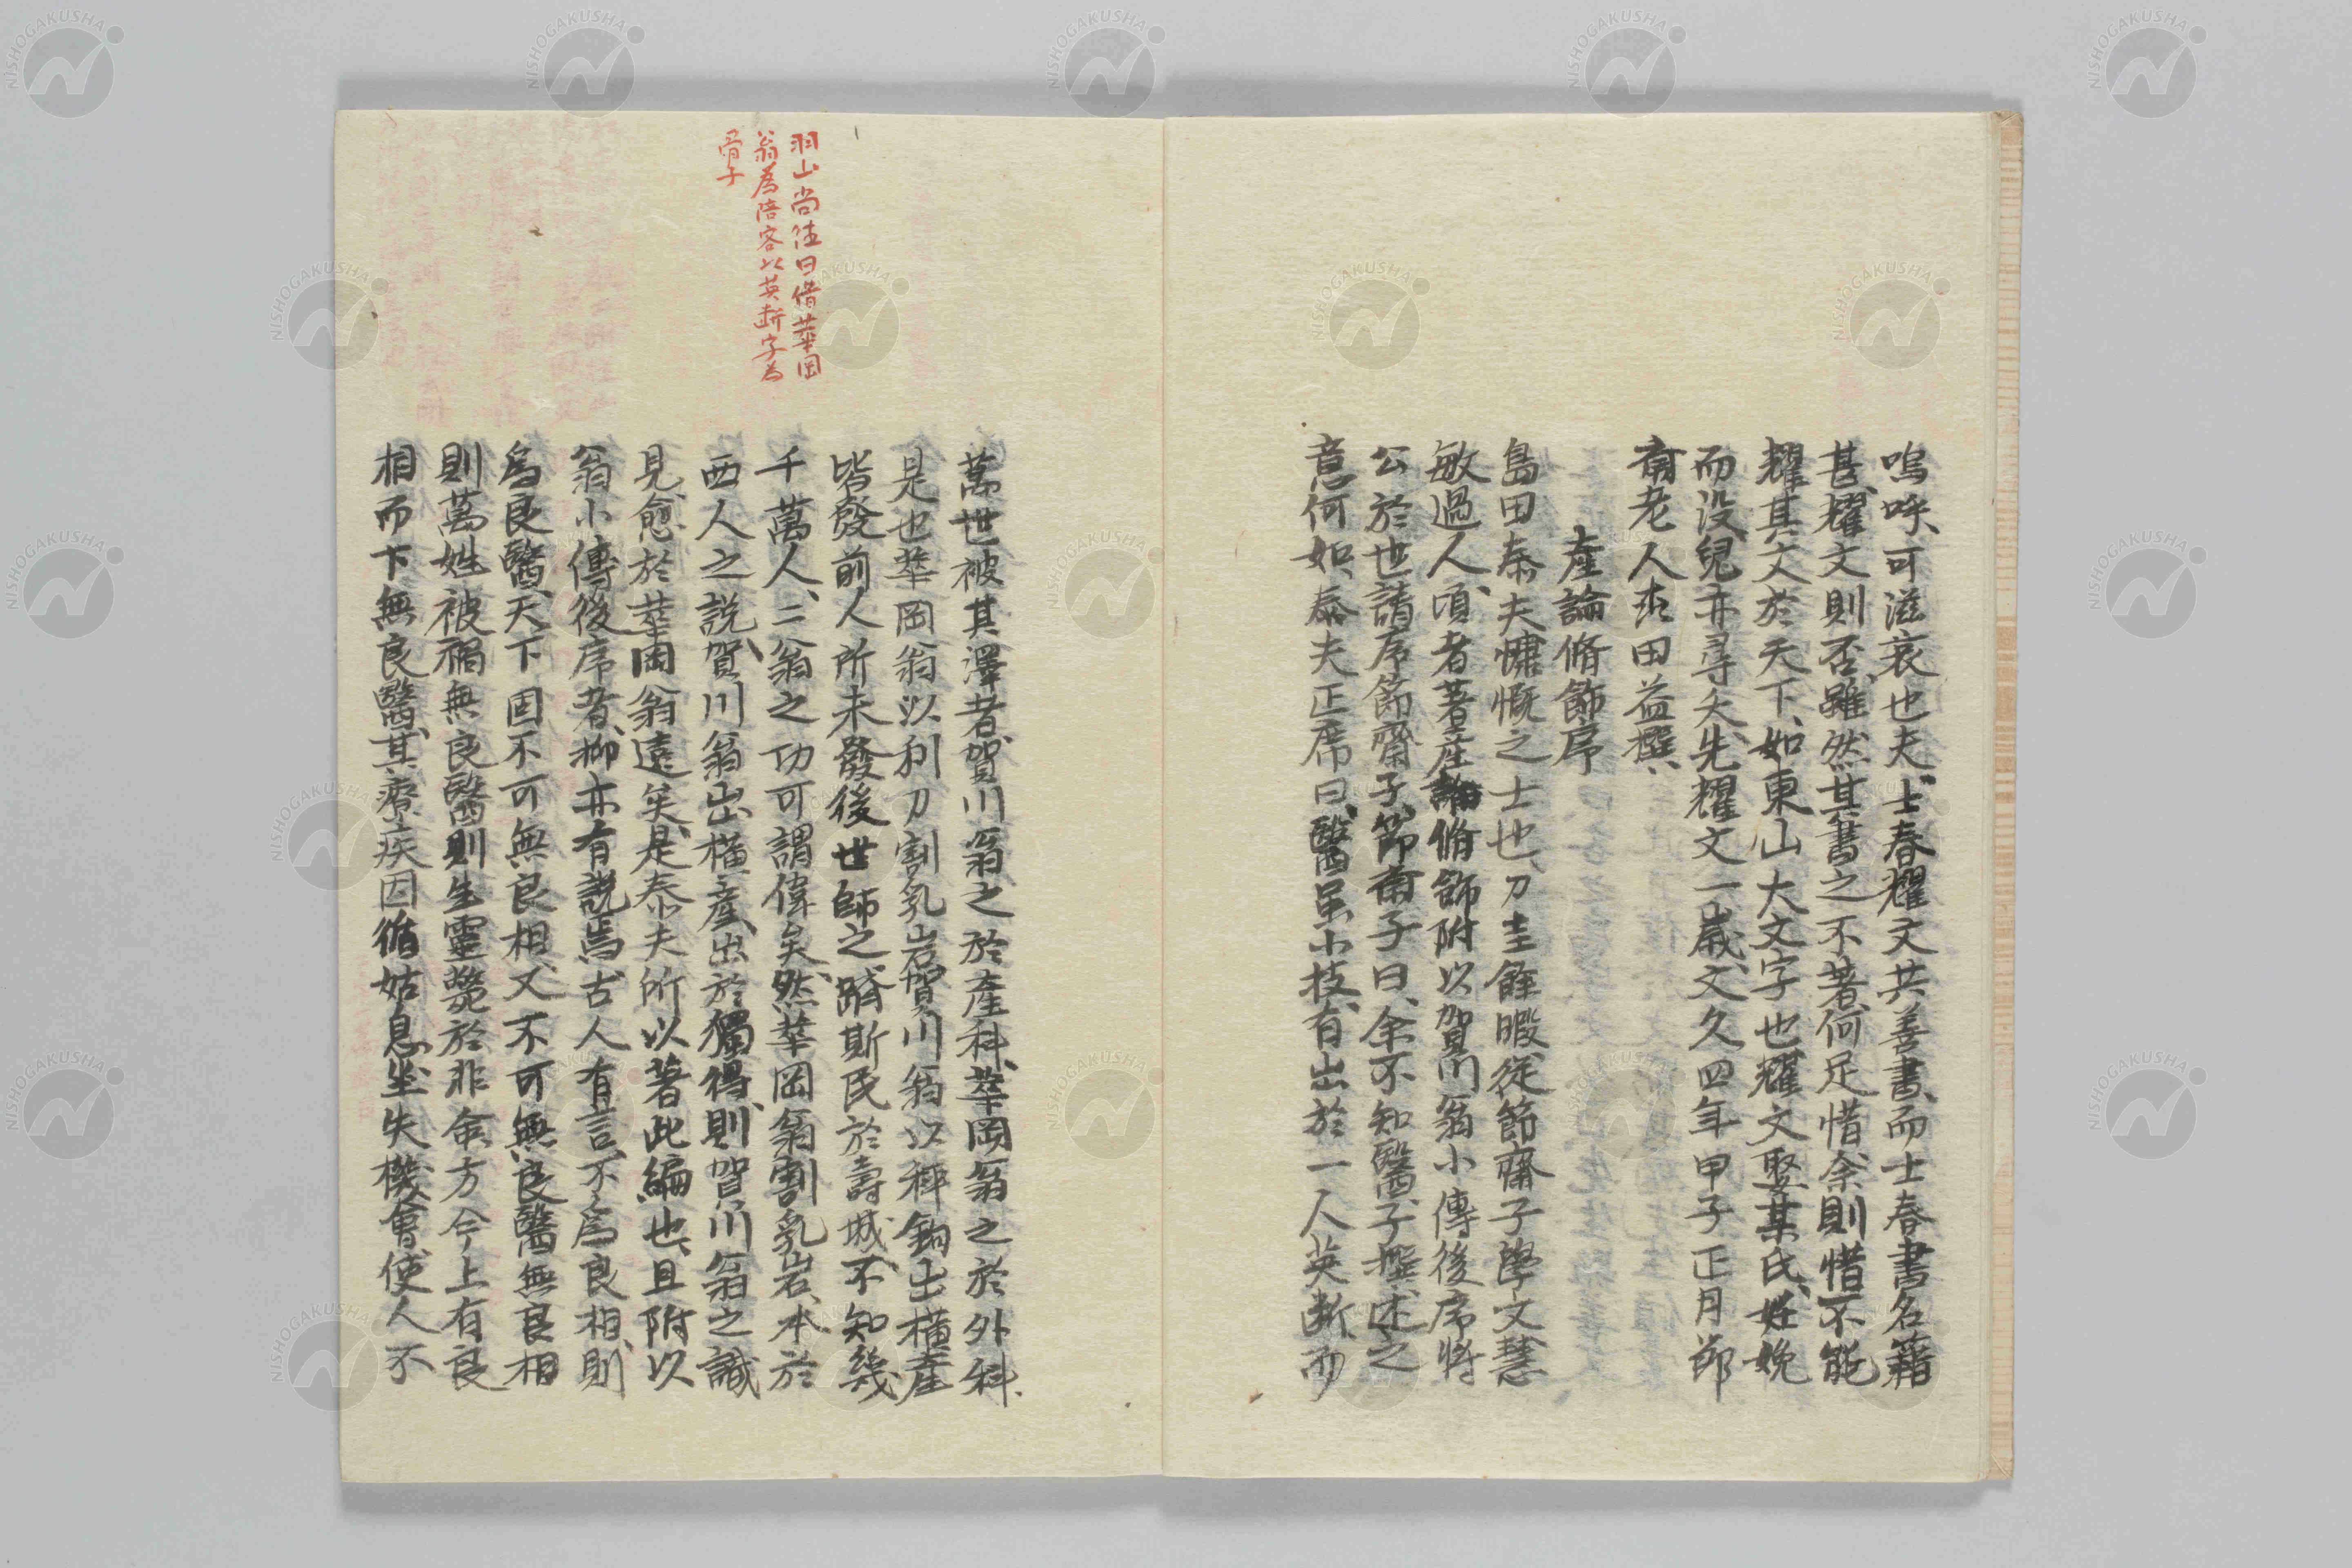 嗚呼、可滋哀也夫、士春耀文共善書、而士春書名藉
甚、耀文則否、雖然其書之不著、何足惜、余則惜不能
耀其文於天下、如東山大文字也、耀文娶某氏、妊娩
而没、兒亦尋夭、先耀文一歲、文久四年甲子正月節
齋老人森田益撰
産論脩飾序
島田泰夫慷慨之士也、刀圭餘暇、從節齋子學文、慧
敏過人、頃者著産論脩飾、附以賀川翁小傳後序、將
公於世、請序節齋子、節齋子曰、余不知醫、子盤述之
意何如、泰夫正席曰、醫虽小技、有出於一人英断、而
萬世被其澤者、賀川翁之於産科、華岡翁之於外科、
是也、華岡翁以利刀割乳岩、賀川翁以秤鉤出横産
皆發前人所未發、後世師之、躋斯民於壽城、不知幾
千萬人、二翁之功可謂偉矣、然華岡翁割乳岩、本於
西人之説、賀川翁出横産、出於獨得、則賀川翁之識
見、愈於華岡翁遠矣、是泰夫所以著此編也、且附以
翁小傳後序者、抑亦有説焉、古人有言、不爲良相、則
爲良醫、天下固不可無良相、又不可無良醫、無良相
則萬姓被禍、無良醫則生靈斃於非命、方今上有良
相、而下無良醫、其療疾因循姑息、坐失機會、使人不
羽山尚徃曰借華岡
翁為陪客以英断字為
骨子